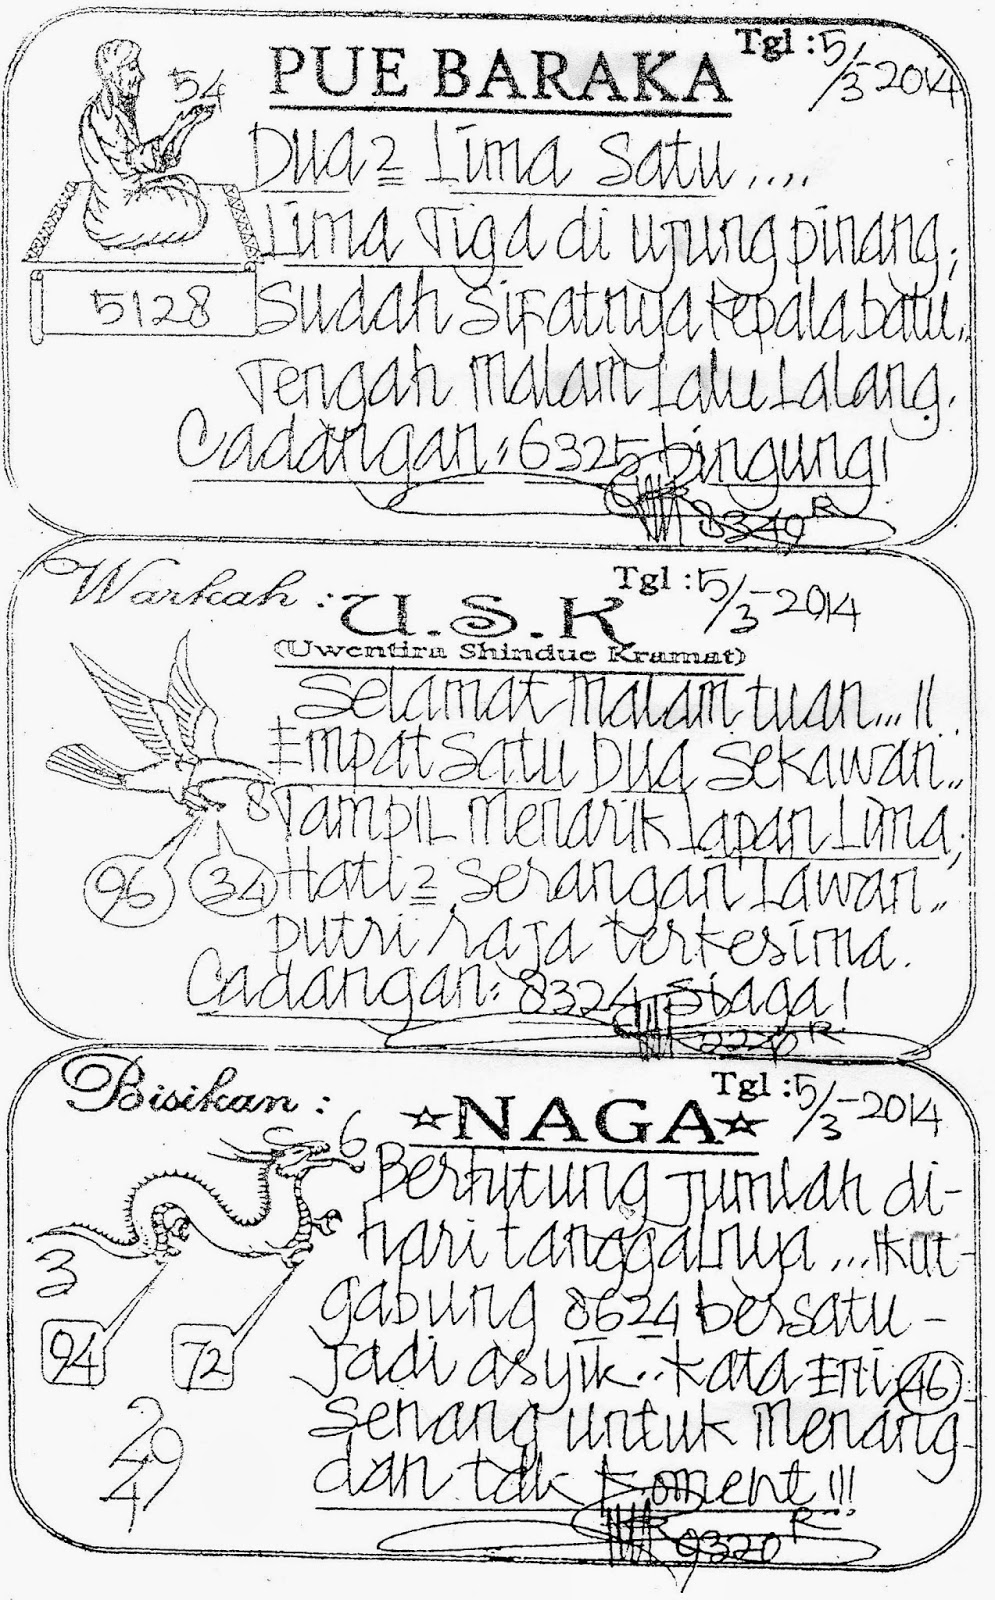 PUE BARAKA
Tgl : 5/3-2014
54
Dua 2 Lima Satu ....
Lima Tiga di ujung pinang;
5128
Sudah Sifatnya kepala batu..
Tengah malam Lalu Lalang.
Cadangan: 6325 bingung!
8349 R
Warkah : U.S.K
Tgl : 5/3-2014
(Uwentira Shindue Kramat)
Selamat malam tuan...!!
Empat Satu Dua Sekawan..
8
Tampil Menarik Lapan Lima;
96
34
Hati 2 Serangan Lawan..
putri raja terkesima.
Cadangan: 8324 Siaga!
R
Bisikan : ☆NAGA☆
Tgl : 5/3-2014
6
Berhitung Jumlah di-
hari tanggalnya... Ikut-
3
gabung 8624 bersatu-
94
72
Jadi asyik.. Kata Eni 46
Senang untuk menang-
2
49
4
dan tak Koment!!!
9320 R